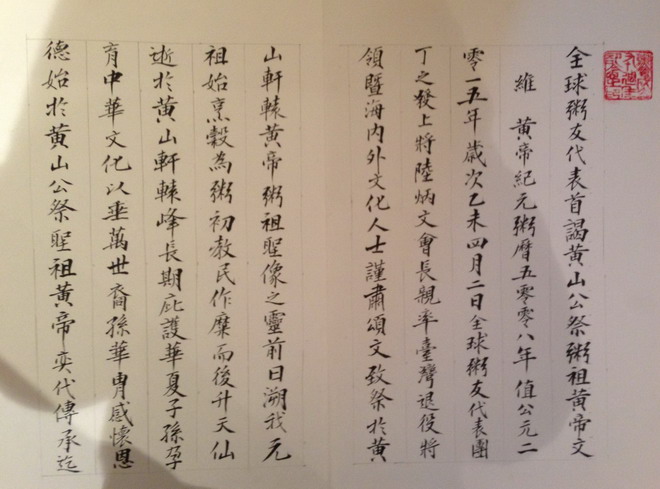 全球粥友代表首謁黃山公祭粥祖黃帝文
維 黃帝紀元粥曆五零零八年值公元二
零一五年歲次乙未四月二日全球粥友代表團
丁之發上將陸炳文會長親率臺灣退役將
領暨海內外文化人士謹肅頌文致祭於黃
山軒轅黃帝粥祖聖像之靈前曰溯我元
祖始烹穀為粥初教民作糜而後升天仙
逝於黃山軒轅峰長期庇護華夏子孫孕
育中華文化以垂萬世裔孫華胄感懷恩
德始於黃山公祭聖祖黃帝奕代傳承迄